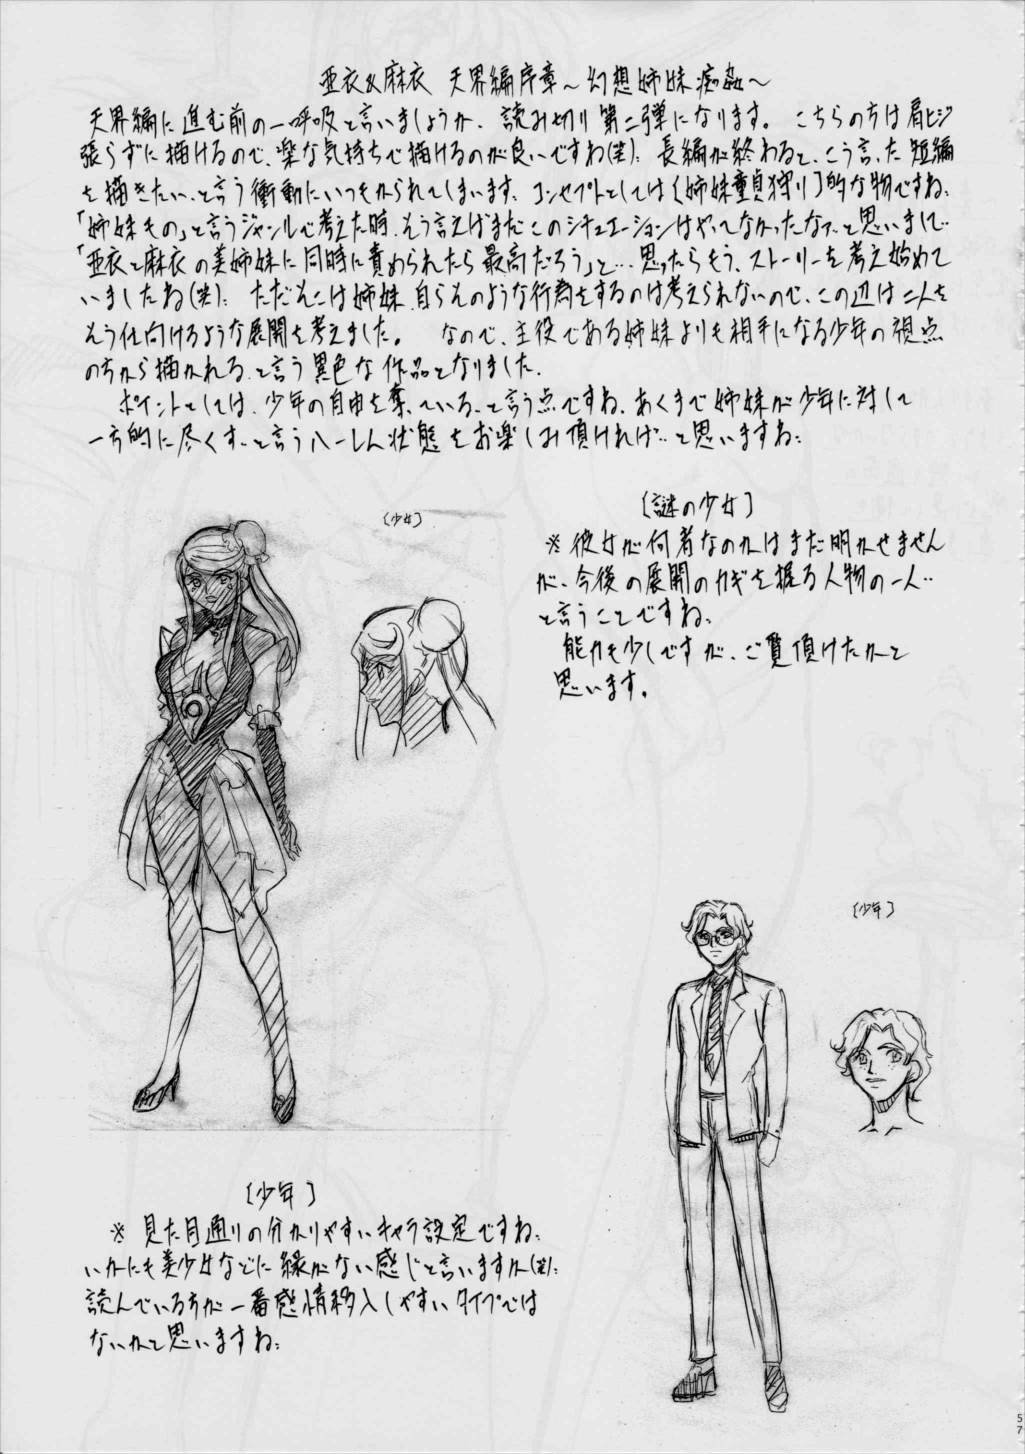 亜衣&麻衣 天界編序章～幻想姉妹痴姦～
天界編に進む前の一呼吸と言いましょうか、読み切り第二弾になります。 こちらの方は肩ヒジ
張らずに描けるので、楽な気持ちで描けるのが良いですね(笑)。長編が終わると、こう言った短編
を描きたい、と言う衝動にいつもかられてしまいます。コンセプトとしては〔姉妹童貞狩り〕的な物ですね。
「姉妹もの」と言うジャンルで考えた時、そう言えばまだこのシチュエーションはやってなかったなァ…と思いまして…
「亜衣と麻衣の美姉妹に同時に責められたら最高だろう」と…思ったらもう、ストーリーを考え始めて
いましたね(笑)。ただそこは姉妹、自らそのような行為をするのは考えられないので、この辺は二人を
そう仕向けるような展開を考えました。 なので、主役である姉妹よりも相手になる少年の視点
の方から描かれる、と言う異色な作品となりました。
ポイントとしては、少年の自由を奪っている、と言う点ですね、あくまで姉妹が少年に対して
一方的に尽くす、と言うハーレム状態をお楽しみ頂ければ…と思いますね。
〔少女〕
〔謎の少女〕
※彼女が何者なのかはまだ明かせません
が、今後の展開のカギを握る人物の一人…
と言うことですね。
能力も少しですが、ご覧頂けたかと
思います。
〔少年〕
〔少年〕
※見た目通りの分かりやすいキャラ設定ですね、
いかにも美少女などに縁がない感じと言いますか(笑)。
読んでいる方が一番感情移入しやすいタイプでは
ないかと思いますね。
57